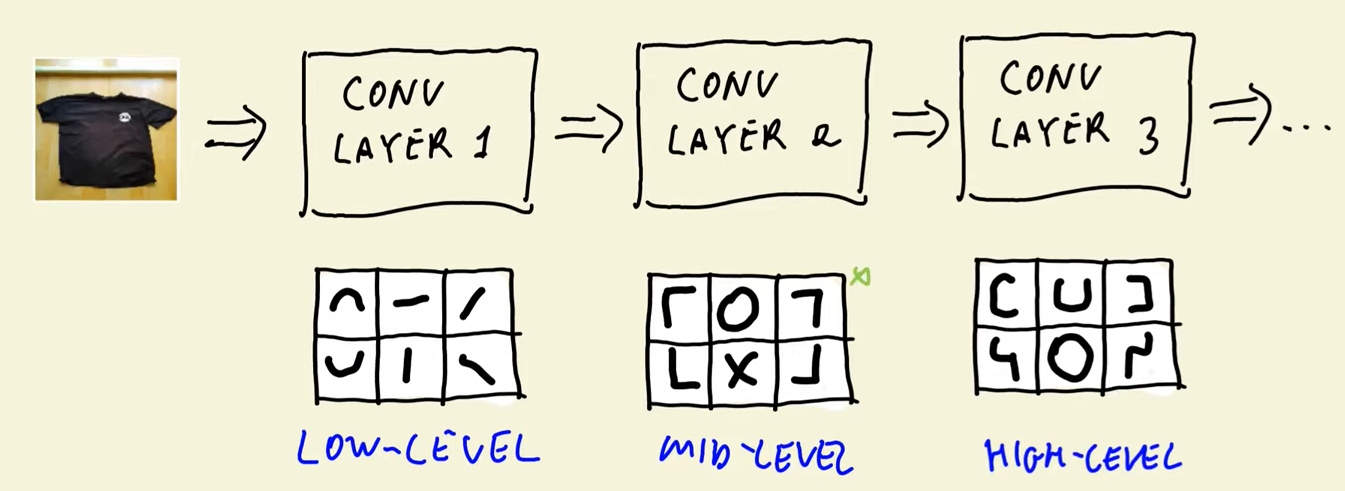 CONV
LAYER 1
CONV
LAYER 2
CONV
LAYER 3
...
LOW-LEVEL
MID-LEVEL
HIGH-LEVEL